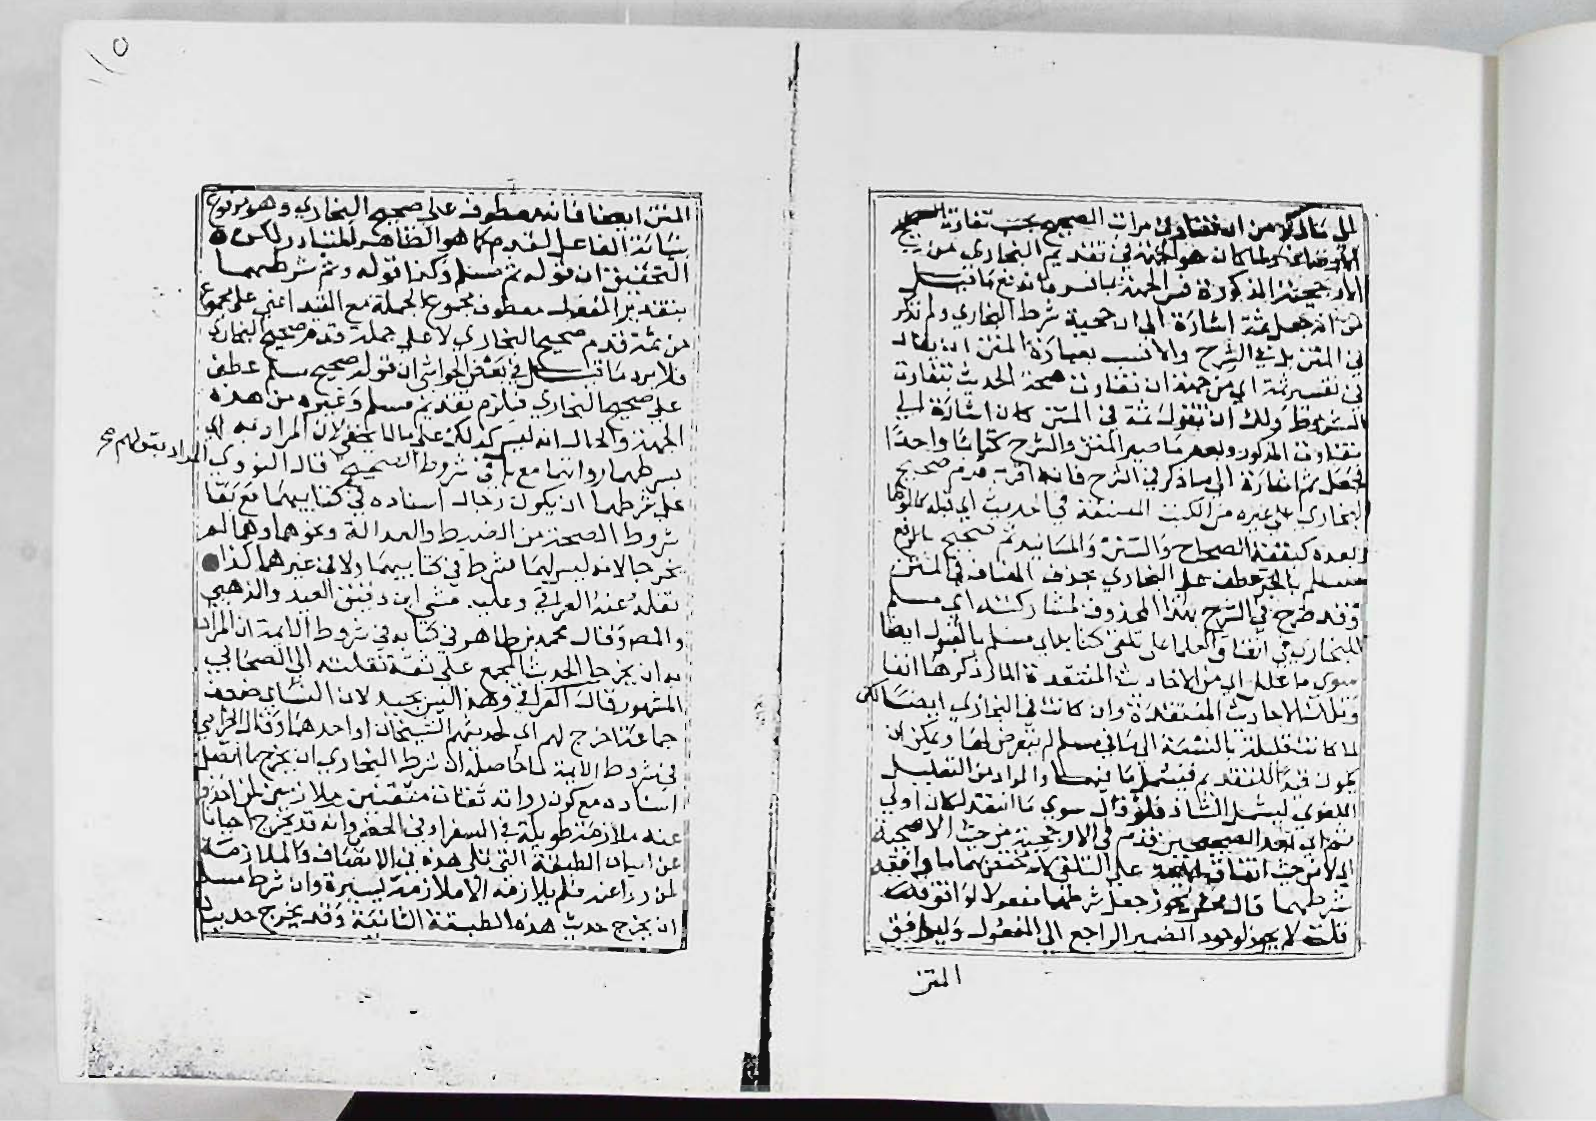 الى ما ذكر من ان تتفاوت مراتب الصحيح بحسب تفاوت
الاوصاف ولما كان هو الجهة في تقديم البخاري من حيث
الارجحية المذكورة فسر الجهة بما فسر فاندفع ما قيل
من انه جعل ثمة اشارة الى ارجحية شرط البخاري ولم تذكر
في المتن بل في الشرح والانسب بعبارة المتن ان يقال
في تفسير ثمة اي من جهة ان تفاوت صحة الحديث بتفاوت
الشروط ولك ان تقول ثمة في المتن كان اشارة الى
تفاوت المذكور وبعد ما صير المتن والشرح كتابا واحدا
فجعل ثم اشارة الى ما ذكر في الشرح فانه اقرب قدم صحيح
البخاري على غيره من الكتب المصنفة في الحديث اي قبله كالموطا
وبعده كبقية الصحاح والسنن والمسانيد ثم صحيح بالرفع
مسلم بالجر عطف على البخاري بحذف المضاف في المتن
وقد صرح في الشرح بهذا المحذوف لمشاركته اي مسلم
للبخاري في اتفاق العلما على تلقي كتابه اي مسلم بالقبول ايضا
سوى ما علل اي من الاحاديث المنتقدة المار ذكرها انفا
وتلك الاحاديث المنتقدة وان كانت في البخاري ايضا لكن
لما كانت قليلة بالنسبة الى ما في مسلم لم يتعرض لها ويمكن ان
يكون قيدا للتقديم فيشمل ما فيهما والمراد من التعليل
اللغوي ليشمل الشاذ فلو قال سوى ما انتقد لكان اولى
ثم اي بعد الصحيحين يقدم في الارجحية من حيث الاصحية
اي لا من حيث اتفاق العلما على التلقي لانه مختص بهما ما وافقه
شرطهما قال محشي يجوز جعل شرطهما مفعولا لوافق
قلت لا يجوز لوجود الضمير الراجع الى المفعول وليوافق
المتن
المتن ايضا فانه معطوف على صحيح البخاري وهو مرفوع
بنيابة الفاعل لقدم كما هو الظاهر المتبادر لكن
التحقيق ان قوله ثم مسلم وكذا قوله وثم شرطهما
بتقدير المفعول معطوف مجموع الجملة مع القيد اعني على مجموع
من ثمة قدم صحيح البخاري لا على جملة قدم صحيح البخاري
فلا يرد ما قيل في بعض الحواشي ان قوله صحيح مسلم عطف
على صحيح البخاري فيلزم تقديم مسلم وغيره من هذه
الجهة والحال انه ليس كذلك على ما لا يخفى لان المراد به اي
المراد بقولهم صح
بشرطهما رواتهما مع باقي شروط الصحيح قال النووي
على شرطهما ان يكون رجال اسناده في كتابيهما مع بقا
شروط الصحة من الضبط والعدالة ونحوهما وهما لم
يخرجا لانه ليس لهما شرط في كتابيهما ولا في غيرهما كذا
نقله عنه العراقي وعليه مشى ابن دقيق العيد والذهبي
والمص وقال محمد بن طاهر في كتابه في شروط الائمة ان المراد
به ان يخرجا الحديث المجمع على ثقة نقلته الى الصحابي
المشهور قال العراقي وهذا ليس بجيد لان النسائي ضعف
جماعة اخرج لهم اي لحديثهم الشيخان او احدهما وقال الحازمي
في شروط الائمة ما حاصله ان شرط البخاري ان يخرج ما اتصل
اسناده مع كون رواته ثقات متقنين ملازمين لمن اخذوا
عنه ملازمة طويلة في السفر او في الحضر وانه قد يخرج احيانا
عن اعيان الطبقة التي تلي هذه في الاتصاف والملازمة
لمن روا عنه فلم يلازمه الا ملازمة يسيرة وان شرط مسلم
ان يخرج حديث هذه الطبقة الثانية وقد يخرج حديث